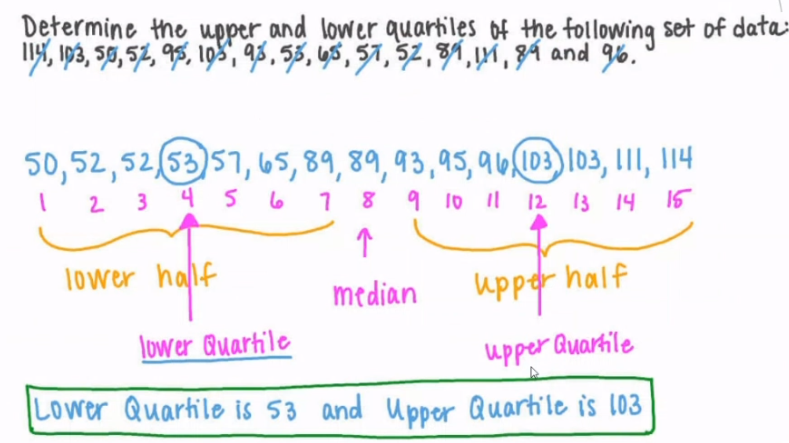 Determine the upper and lower quartiles of the following set of data:
114, 103, 50, 52, 95, 103, 93, 53, 65, 57, 52, 89, 111, 89 and 96.
50, 52, 52, 53, 57, 65, 89, 89, 93, 95, 96, 103, 103, 111, 114
1 2 3 4 5 6 7 8 9 10 11 12 13 14 15
lower half upper half
median
lower Quartile upper Quartile
Lower Quartile is 53 and Upper Quartile is 103